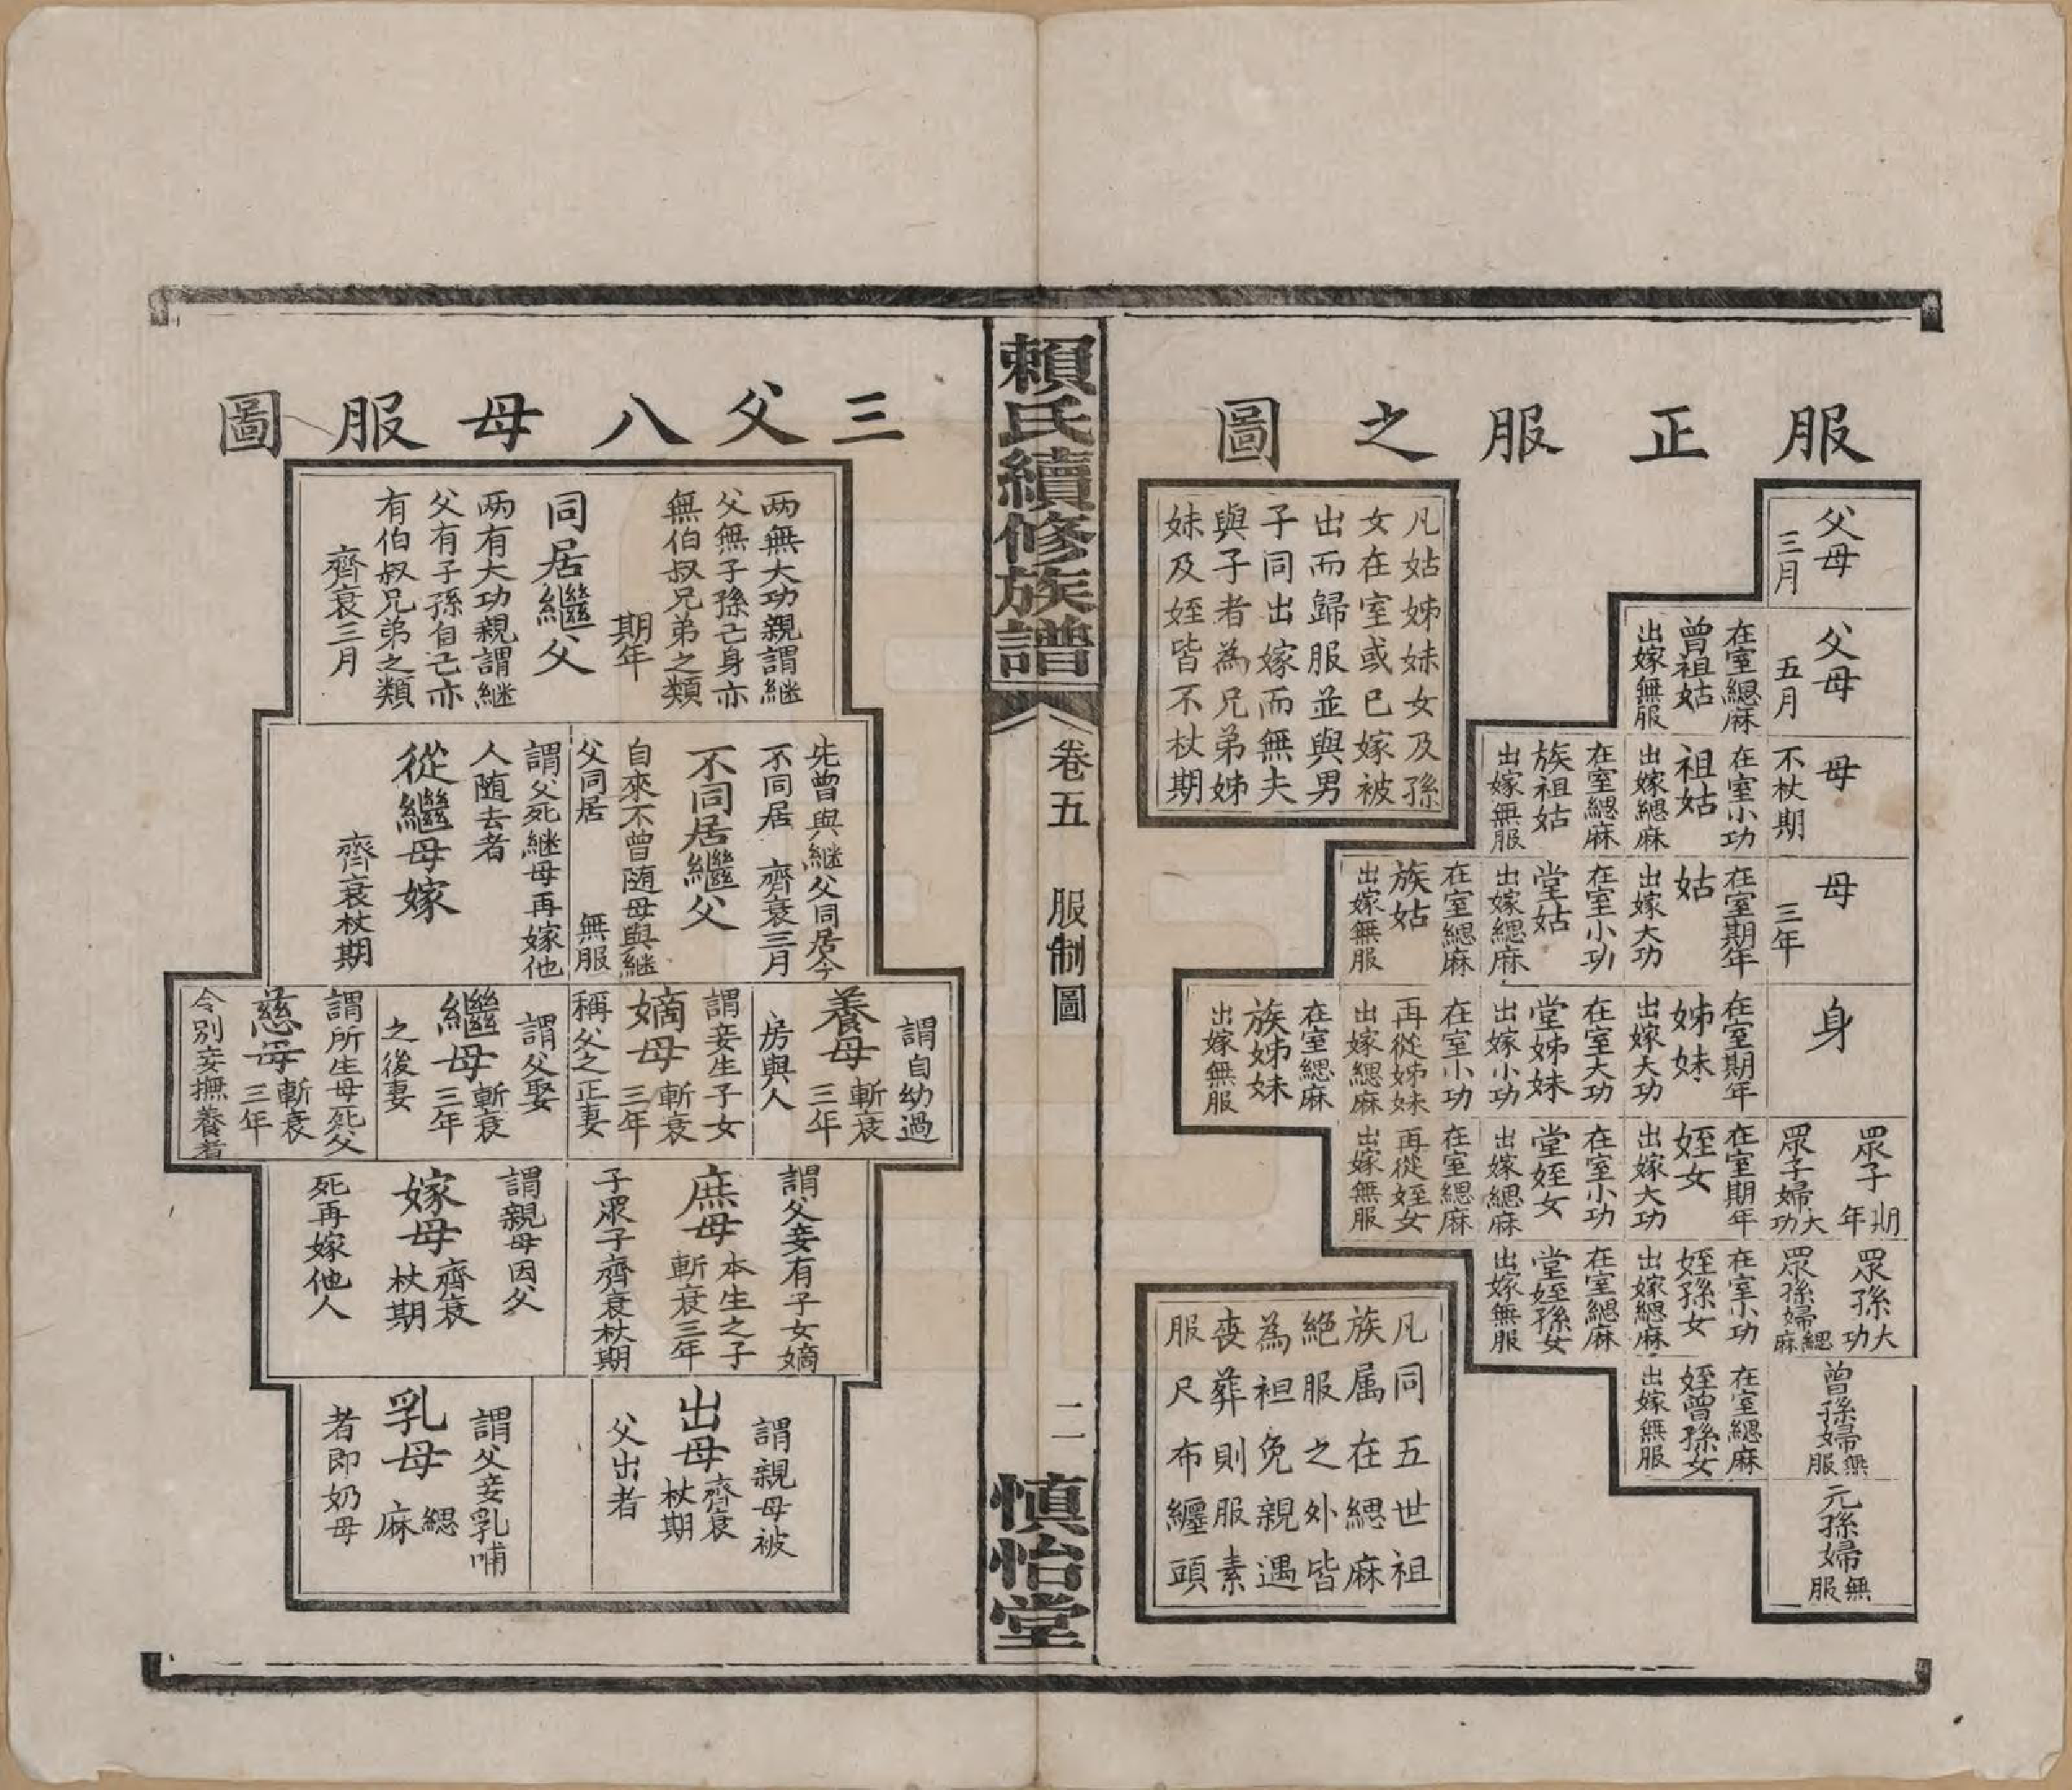 服正服之圖
凡姑姊妹女及孫
女在室或已嫁被
出而歸服並與男
子同出嫁而無夫
與子者為兄弟姊
妹及姪皆不杖期
父母
三月
父母
五月
在室緦麻
曾祖姑
出嫁無服
母
不杖期
在室小功
祖姑
出嫁緦麻
在室緦麻
族祖姑
出嫁無服
母
三年
在室期年
姑
出嫁大功
在室小功
堂姑
出嫁緦麻
在室緦麻
族姑
出嫁無服
身
在室期年
姊妹
出嫁大功
在室大功
堂姊妹
出嫁小功
在室小功
再從姊妹
出嫁緦麻
在室緦麻
族姊妹
出嫁無服
眾子期年
眾子婦大功
在室期年
姪女
出嫁大功
在室小功
堂姪女
出嫁緦麻
在室緦麻
再從姪女
出嫁無服
眾孫大功
眾孫婦緦麻
在室小功
姪孫女
出嫁緦麻
在室緦麻
堂姪孫女
出嫁無服
曾孫婦無服
在室緦麻
姪曾孫女
出嫁無服
元孫婦無服
凡同五世祖
族属在緦麻
絕服之外皆
為袒免親遇
喪葬則服素
服尺布纏頭
賴氏續修族譜
卷五 服制圖
二
慎怡堂
三父八母服圖
两無大功親謂継
父無子孫己身亦
無伯叔兄弟之類
期年
同居繼父
两有大功親謂継
父有子孫自己亦
有伯叔兄弟之類
齊衰三月
先曾與継父同居今
不同居 齊衰三月
不同居繼父
自來不曾随母與継
父同居 無服
謂父死継母再嫁他
人随去者
從繼母嫁
齊衰杖期
謂自幼過
養母斬衰三年
房與人
謂妾生子女
嫡母斬衰三年
稱父之正妻
謂父娶
繼母斬衰三年
之後妻
謂所生母死父
慈母斬衰三年
令別妾撫養者
謂父妾有子女嫡
庶母本生之子斬衰三年
子眾子齊衰杖期
謂親母因父
嫁母齊衰杖期
死再嫁他人
謂親母被
出母齊衰杖期
父出者
謂父妾乳哺
乳母緦麻
者即奶母